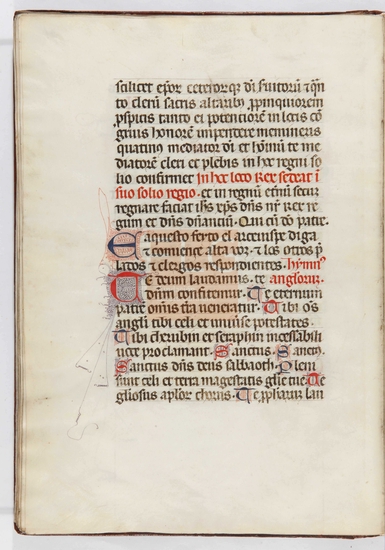 scilicet epor ceterorqz di suitorū ⁊ qn
to clerū sacris altaribꝰ ppinquiorem
pspicis tanto ei potenciorē in locis cō
gruis honorē impentere memineris
quatinꝰ mediator di et hoīm te me
diatorē cleri et plebis in hoc regni so
lio confirmet In hoc loco Rex sedeat ī
suo solio regio. et in regnū eternū secū
regnare faciat ihs xps dns nr Rex re
gum et dns dnanciū. Qui cū do patre.
E aquesto fecto el arceuispe diga
⁊ comence alta voz. ⁊ los otros p
lados ⁊ clerigos respondientes. hymnꝰ
Te deum laudamus. te anglorum.
dnm confitemur. Te eternum
patrē omīs tra veneratur. Tibi oēs
angli tibi celi et uniuse potestates.
Tibi cherubin et seraphin incessabili
uoce proclamant. Sanctus. Sanctꝰ.
Sanctus dns deus sabbaoth. Pleni
sunt celi et terra magestatis glie tue. Te
gliosus aplor chorus. Te ppharum lau